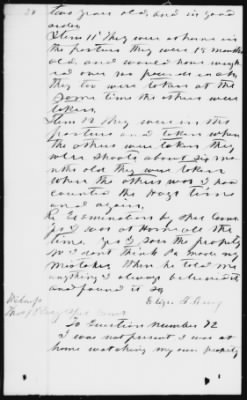 two years old, and in good
order
Item 11 They were at home in
the pasture they were 18 months
old, and would have weighed
over 100 pounds each
they too were taken at the
same time the others were
taken.
Item 12 They were in the
pasture and taken when
the others were taken they
were shoats about six mon
ths old they were taken
when the others was I had
counted the hogs time
and again.
Re Examination by Spec Com
I was at home all the
time yes I saw the property
I don't think Pa made any
mistakes When he told me
anything I always believed it
and found it so
Witness
To Question Number 72
I was not present I was at
home watching my own property